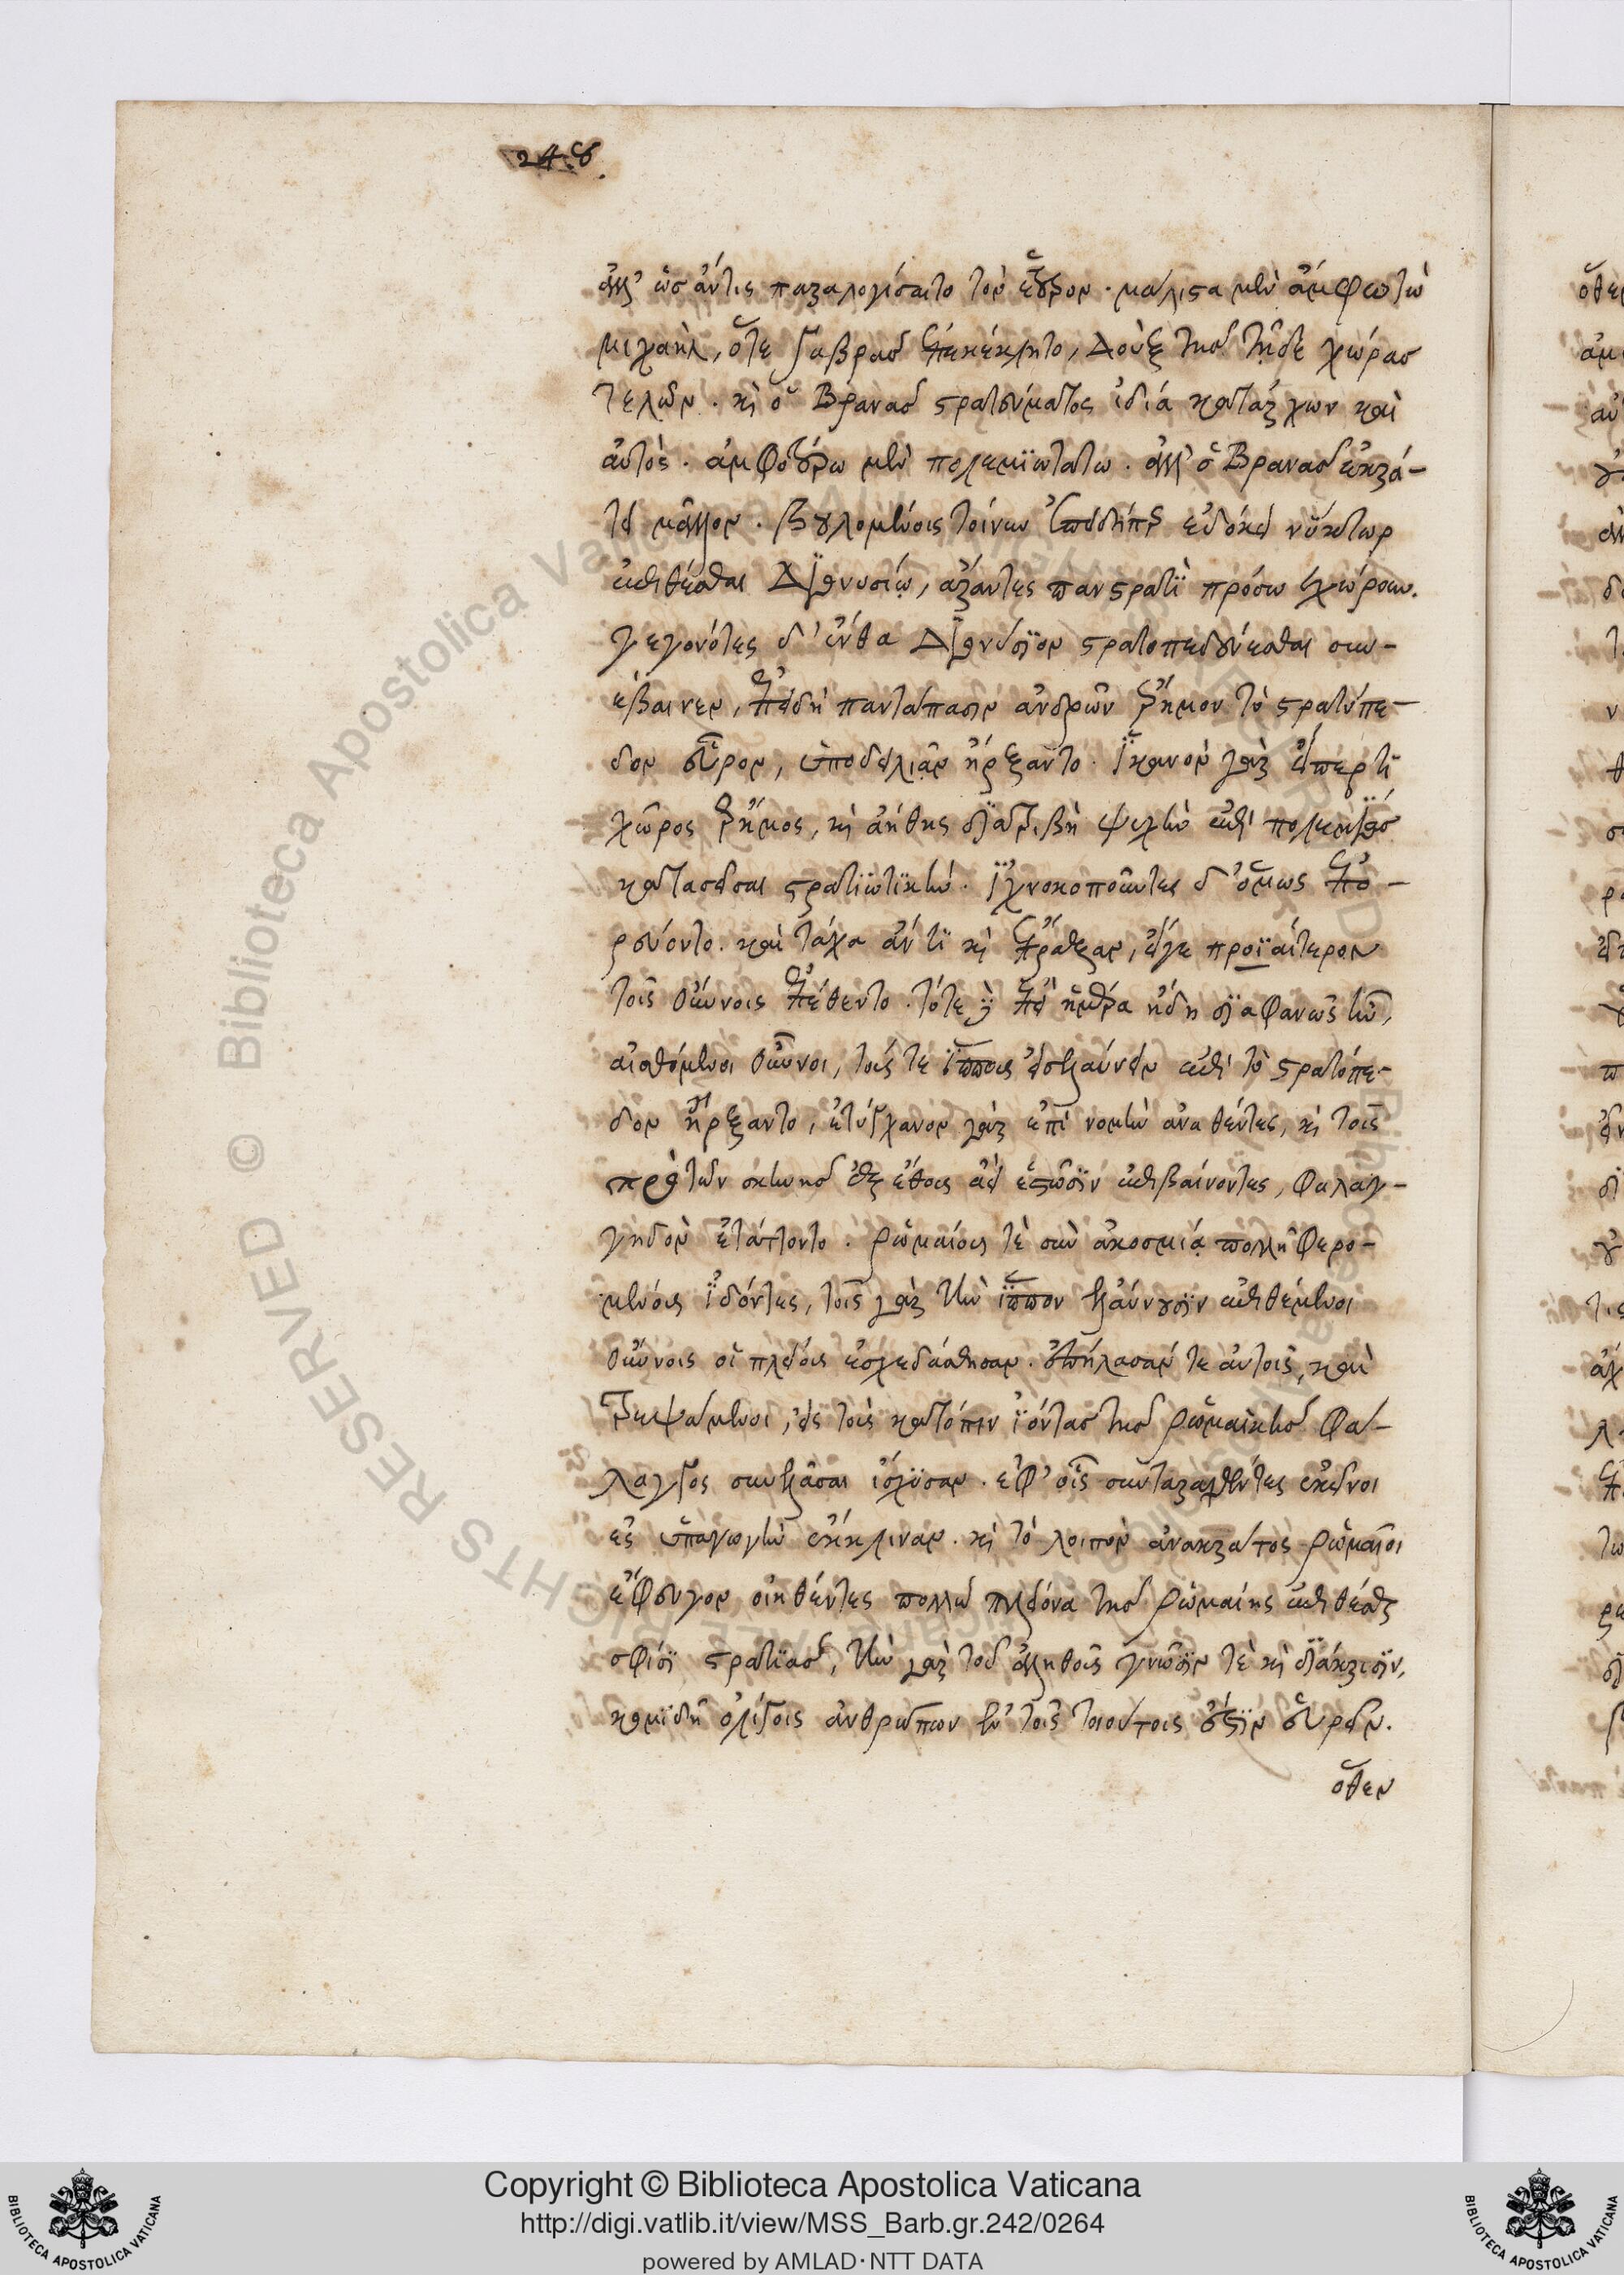 248.
ἀλλ' ὡσ ἄν τις παραλογίσαιτο τὸν ἕτερον. μάλιστα μὲν ἄμφω τὼ
μιχαὴλ, ὅτε Γαβρασ ἐπεκέκλητο, Δοὺξ τῆσ τῇδε χώρασ
τελῶν. καὶ ὁ Βρανασ στρατεύματος ἰδίᾳ κατάρχων καὶ
αὐτός. ἀμφοτέρω μὲν πολεμϊωτάτω. ἀλλ' ὁ Βρανασ ἐκρά-
τει μᾶλλον. βουλομένοις τοίνυν ἐπειδήπερ ἐδόκει νύκτωρ
ἐπιθέσθαι Διονυσίῳ, ἄραντες πανστρατϊ πρόσω ἐχώρουν.
γεγονότες δ' ἔνθα Διονύσϊον στρατοπεδεύεσθαι συν-
έβαινεν, ἐπειδὴ παντάπασϊν ἀνδρῶν ἔρημον τὸ στρατόπε-
δον εὗρον, ὑποδειλιᾶν ἤρξαντο. ἱκανὸν γὰρ εἴπέρ τι
χῶρος ἔρημος, καὶ ἀήθης διατριβὴ ψυχὴν ἐπὶ πολεμίασ
κατασεῖσαι στρατϊωτϊκὴν. ἰχνοσκοποῦντες δ' ὅμως ἐπο-
ρεύοντο. καὶ τάχα ἄν τϊ καὶ ἔπραξαν, εἴγε προϊαίτερον
τοῖς Οὔννοις ἐπέθεντο. τότε δὲ ἐπεὶ ἡμέρα ἤδη διαφανῶς ἦν,
αἰσθόμενοι Οὖννοι, τούς τε ἵππους εἰσελαύνειν ἐπὶ τὸ στρατόπε-
δον ἤρξαντο, ἐτύγχανον γὰρ ἐπὶ νομὴν ἀναθέντες, καὶ τοῖς
πρὸ τῶν σκηνῆσ ἐξ ἔθους ἀεὶ ἑστῶσϊν ἐπιβαίνοντες, φαλαγ-
γηδὸν ἐτάττοντο. Ῥωμαίους τὲ σὺν ἀκοσμίᾳ πολλῇ φερο-
μένους ἰδόντες, τοῖς γὰρ τὴν ἵππον ἐλαύνουσϊν ἐπιθέμενοι
Οὔννοις οἱ πλείους ἐσκεδάσθησαν. ἐπήλασάν τε αὐτοῖς, καὶ
τρεψάμενοι, εἰς τοὺς κατόπιν ἰόντασ τῆσ ῥωμαϊκῆσ φά-
λαγγος συνελάσαι ἴσχυσαν. ἐφ' οἷς συνταραχθέντες ἐκεῖνοι
ἐς ὑπαγωγὴν ἐξέκλιναν. καὶ τὸ λοιπὸν ἀνακρατος Ῥωμαῖοι
ἔφευγον οἰηθέντες πολλῷ πλείονα τῆσ Ῥωμαίης ἐπιθέσθαι
σφίσϊ στρατϊασ, τὴν γὰρ τοῦ ἀληθοῦς γνῶσϊν τὲ καὶ διάκρισϊν,
κομϊδῇ ὀλίγοις ἀνθρώπων ἐν τοῖς τοιούτοις ἐστϊν εὑρεῖν.
ὅθεν
Copyright © Biblioteca Apostolica Vaticana
http://digi.vatlib.it/view/MSS_Barb.gr.242/0264
powered by AMLAD·NTT DATA